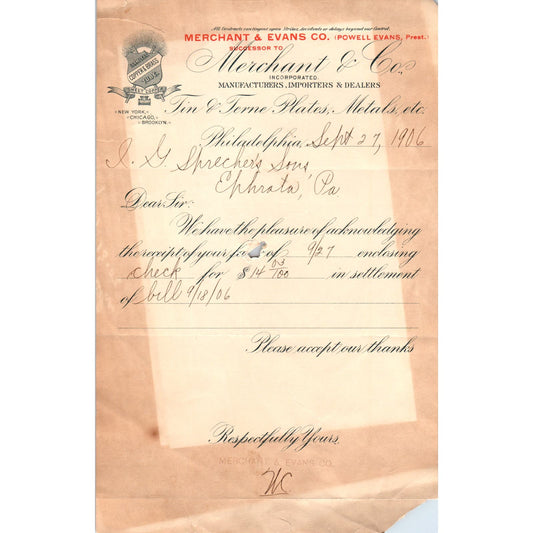 All Contracts contingent upon Strikes, Accidents or delays beyond our Control.
MERCHANT & EVANS CO. (POWELL EVANS, Prest.)
SUCCESSOR TO
Merchant & Co.,
INCORPORATED.
MANUFACTURERS, IMPORTERS & DEALERS
Tin & Terne Plates, Metals, etc.
COPPER & BRASS
NEW YORK,
CHICAGO,
BROOKLYN.
Philadelphia, Sept 27, 1906
I. G. Sprecher's Sons
Ephrata, Pa
Dear Sir:
We have the pleasure of acknowledging
the receipt of your fa of 9/27 enclosing
check for $14 03/100 in settlement
of bill 9/18/06
Please accept our thanks
Respectfully Yours,
MERCHANT & EVANS CO.